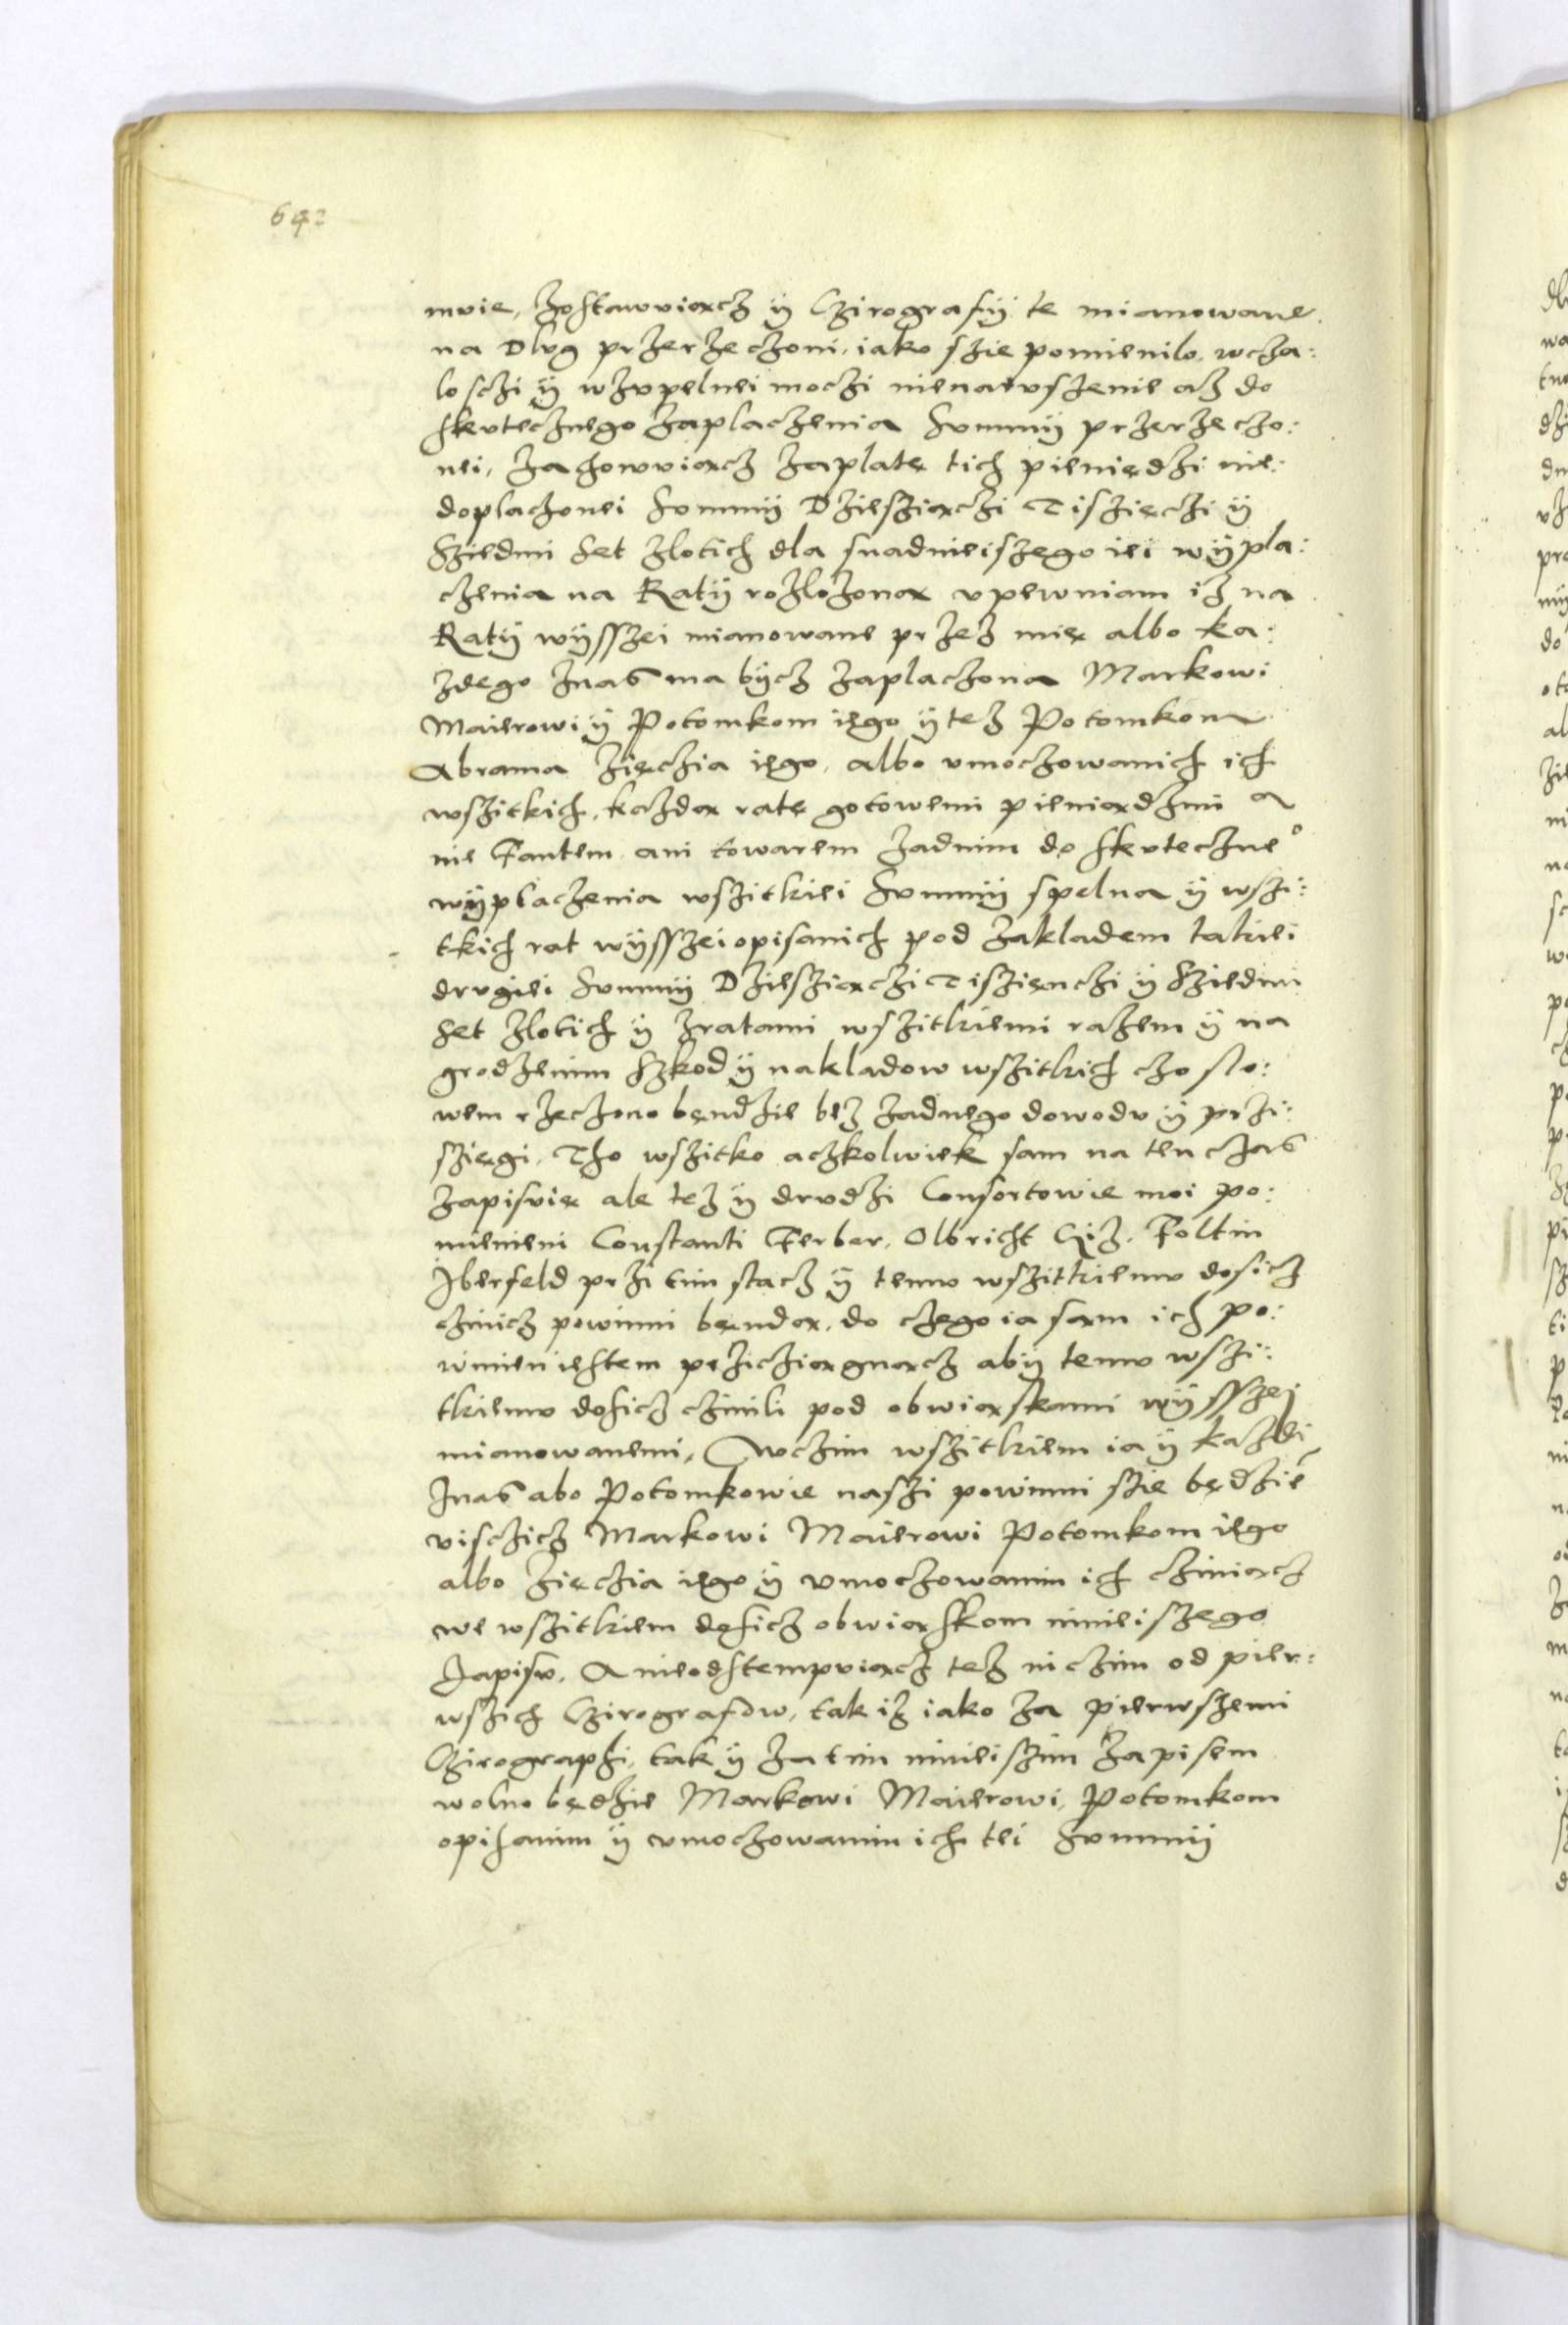 642
mvie, Zostawviącz ÿ Czirografÿ te mianowane
na Dlvg przerzeczoni, iako szie pomienilo, wcza:
losczi ÿ wzvpelnei moczi nienarvszenie asz do
skvtecznego zaplaczenia Svmmÿ przerzeczo:
nei, zachowviącz zaplatę tich pieniędzi nie:
doplaczonei Svmmÿ Dziesziączi Tiszięczi ÿ
Sziedmi Set zlotich dla snadnieiszego iei wÿpla:
czenia na Ratÿ rozlozoną vpewniam isz na
Ratÿ wÿsszei mianowane przez mię albo ka:
zdego znas ma bÿcz zaplaczona Markowi
Maierowi ÿ Potomkom iego ÿ tesz Potomkom
Abrama Zięczia iego, albo vmoczowanich ich
wszitkich, kazdą ratę gotowemi pieniądzmi a
nie Fantem ani towarem zadnim do skvteczne°
wÿplaczenia wszitkiei Svmmÿ spelna ÿ wszi:
tkich rat wÿsszei opisanich pod zakladem takiei
drvgiei Svmmÿ Dziesziączi Tiszięnczi ÿ Sziedmi
Set zlotich ÿ zratami wszitkiemi razem ÿ na
grodzenim Szkod ÿ nakladow wszitkich czo slo:
wem rzeczono bęndzie bez zadnego dowodv ÿ przi:
szięgi, Tho wszitko aczkolwiek sam na ten czas
zapisvię ale tesz ÿ drvdzi Consortowie moi po:
mienieni Constanti Ferber, Olbricht Giz, Foltin
Iberfeld przi tim stacz ÿ temv wszitkiemv dosicz
czinicz powinni bęndą, do czego ia sam ich po:
winien iestem przicziągnącz abÿ temv wszi:
tkiemv dosicz czinili pod obwiąskami wÿsszej
mianowanemi, Wczim wszitkiem ia ÿ kazdi
znas abo Potomkowie naszi powinni szie będzie
visczicz Markowi Maierowi Potomkom iego
albo Zięczia iego ÿ vmoczowanim ich cziniącz
we wszitkiem dosicz obwiąskom ninieiszego
Zapisv, A nieodstempviącz tesz niczim od pier:
wszich Czirografow, tak iz iako za pierwszemi
Czirographi, tak ÿ za tim ninieiszim zapisem
wolno będzie Markowi Maierowi, Potomkom
opisanim ÿ vmoczowanim ich tei Svmmÿ